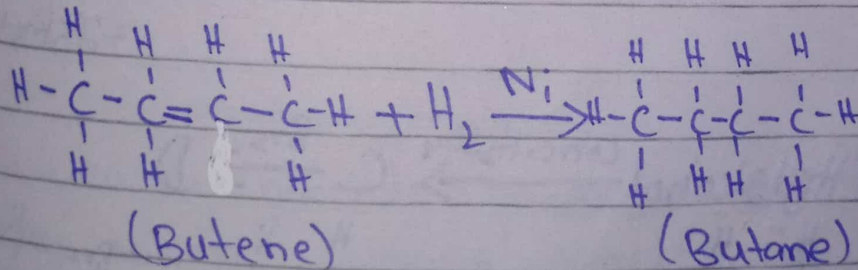 H H H H H H H H
H-C-C=C-C-H + H₂ Ni→ H-C-C-C-C-H
H H H H H H H
(Butene) (Butane)